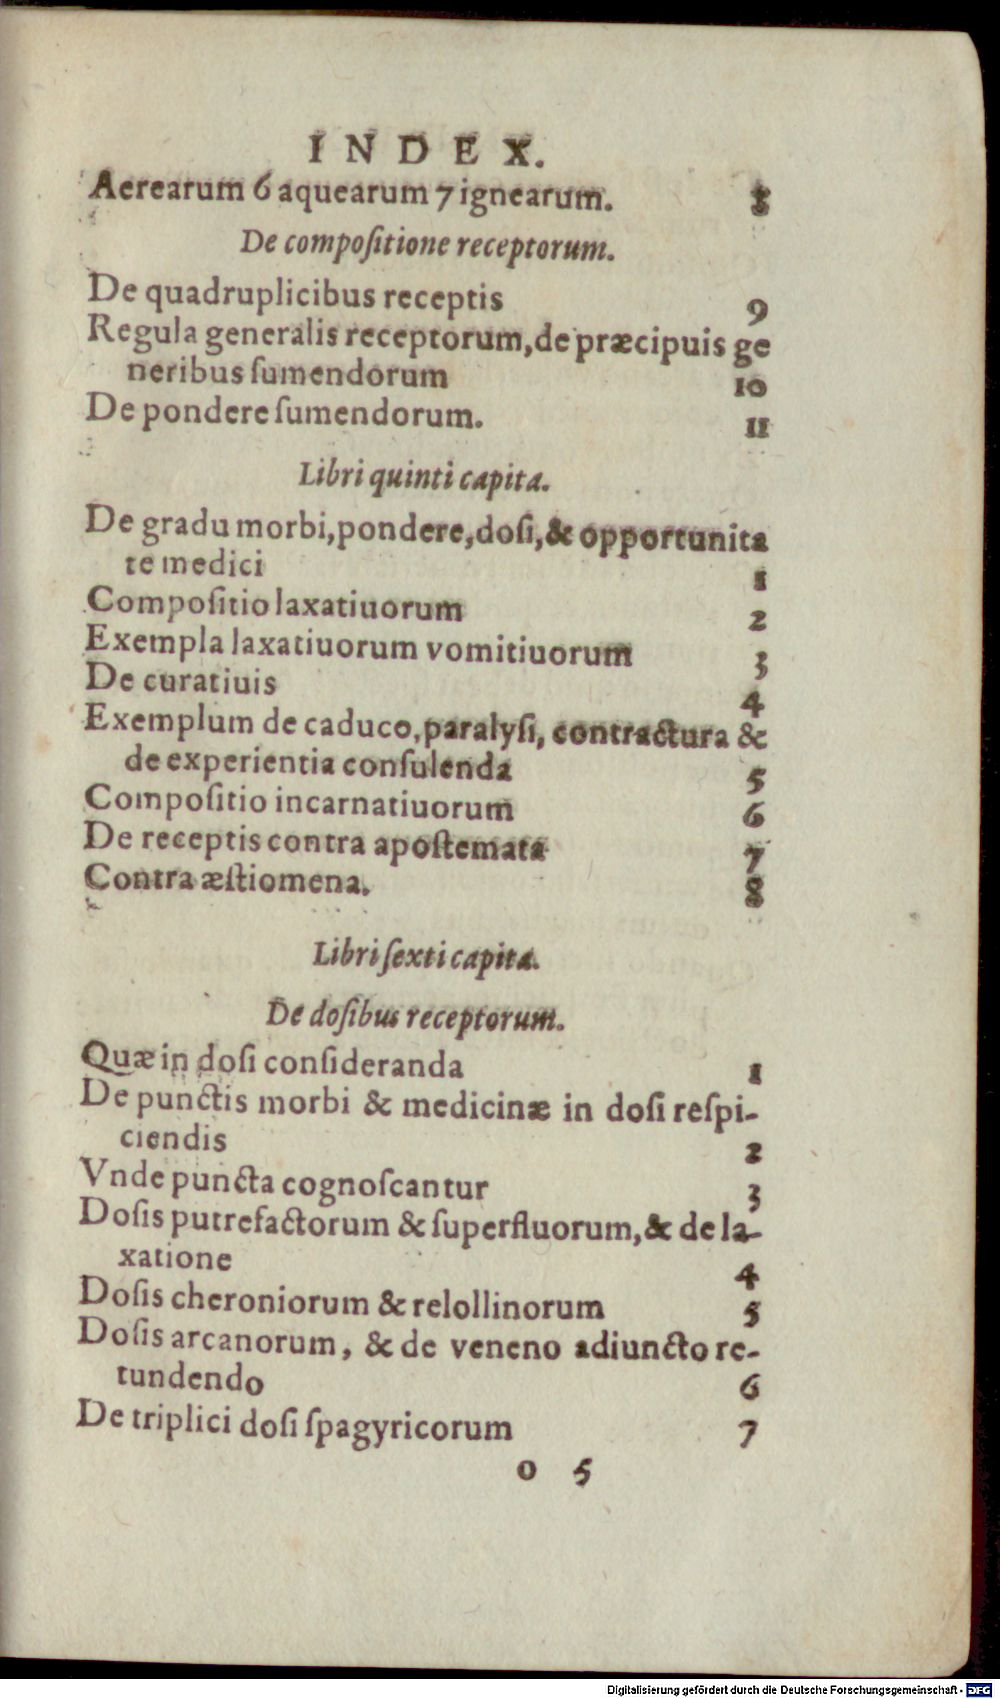 INDEX.
Aerearum 6 aquearum 7 ignearum. 8
De compoſitione receptorum.
De quadruplicibus receptis 9
Regula generalis receptorum, de præcipuis ge
neribus ſumendorum 10
De pondere ſumendorum. 11
Libri quinti capita.
De gradu morbi, pondere, doſi, & opportunita
te medici 1
Compoſitio laxatiuorum 2
Exempla laxatiuorum vomitiuorum 3
De curatiuis 4
Exemplum de caduco, paralyſi, contractura &
de experientia conſulenda 5
Compoſitio incarnatiuorum 6
De receptis contra apoſtemata 7
Contra æſtiomena. 8
Libri ſexti capita.
De doſibus receptorum.
Quæ in doſi conſideranda 1
De punctis morbi & medicinæ in doſi reſpi-
ciendis 2
Vnde puncta cognoſcantur 3
Doſis putrefactorum & ſuperfluorum, & de la-
xatione 4
Doſis cheroniorum & relollinorum 5
Doſis arcanorum, & de veneno adiuncto re-
tundendo 6
De triplici doſi ſpagyricorum 7
o 5
Digitalisierung gefördert durch die Deutsche Forschungsgemeinschaft - DFG